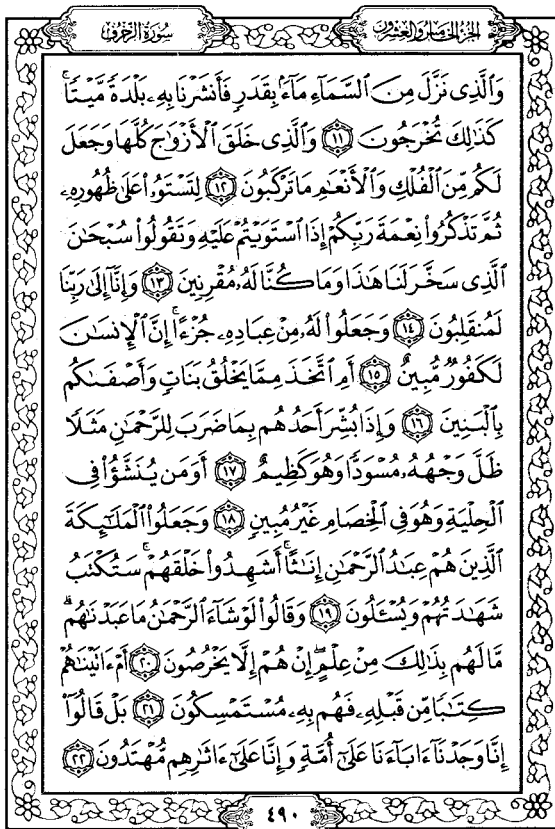 الجزء الخامس والعشرون
سورة الزخرف
وَالَّذِى نَزَّلَ مِنَ السَّمَآءِ مَآءًۢ بِقَدَرٍ فَأَنشَرْنَا بِهِۦ بَلْدَةً مَّيْتًا ۚ
كَذَٰلِكَ تُخْرَجُونَ ۝١١ وَالَّذِى خَلَقَ الْأَزْوَٰجَ كُلَّهَا وَجَعَلَ
لَكُم مِّنَ الْفُلْكِ وَالْأَنْعَٰمِ مَا تَرْكَبُونَ ۝١٢ لِتَسْتَوُۥا۟ عَلَىٰ ظُهُورِهِۦ
ثُمَّ تَذْكُرُوا۟ نِعْمَةَ رَبِّكُمْ إِذَا اسْتَوَيْتُمْ عَلَيْهِ وَتَقُولُوا۟ سُبْحَٰنَ
الَّذِى سَخَّرَ لَنَا هَٰذَا وَمَا كُنَّا لَهُۥ مُقْرِنِينَ ۝١٣ وَإِنَّآ إِلَىٰ رَبِّنَا
لَمُنقَلِبُونَ ۝١٤ وَجَعَلُوا۟ لَهُۥ مِنْ عِبَادِهِۦ جُزْءًا ۚ إِنَّ الْإِنسَٰنَ
لَكَفُورٌ مُّبِينٌ ۝١٥ أَمِ اتَّخَذَ مِمَّا يَخْلُقُ بَنَاتٍ وَأَصْفَىٰكُم
بِالْبَنِينَ ۝١٦ وَإِذَا بُشِّرَ أَحَدُهُم بِمَا ضَرَبَ لِلرَّحْمَٰنِ مَثَلًا
ظَلَّ وَجْهُهُۥ مُسْوَدًّا وَهُوَ كَظِيمٌ ۝١٧ أَوَمَن يُنَشَّؤُا۟ فِى
الْحِلْيَةِ وَهُوَ فِى الْخِصَامِ غَيْرُ مُبِينٍ ۝١٨ وَجَعَلُوا۟ الْمَلَٰٓئِكَةَ
الَّذِينَ هُمْ عِبَٰدُ الرَّحْمَٰنِ إِنَٰثًا ۚ أَشَهِدُوا۟ خَلْقَهُمْ ۚ سَتُكْتَبُ
شَهَٰدَتُهُمْ وَيُسْـَٔلُونَ ۝١٩ وَقَالُوا۟ لَوْ شَآءَ الرَّحْمَٰنُ مَا عَبَدْنَٰهُم ۗ
مَّا لَهُم بِذَٰلِكَ مِنْ عِلْمٍ ۖ إِنْ هُمْ إِلَّا يَخْرُصُونَ ۝٢٠ أَمْ ءَاتَيْنَٰهُمْ
كِتَٰبًا مِّن قَبْلِهِۦ فَهُم بِهِۦ مُسْتَمْسِكُونَ ۝٢١ بَلْ قَالُوٓا۟
إِنَّا وَجَدْنَآ ءَابَآءَنَا عَلَىٰٓ أُمَّةٍ وَإِنَّا عَلَىٰٓ ءَاثَٰرِهِم مُّهْتَدُونَ ۝٢٢
٤٩٠